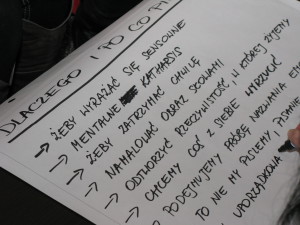 DLACZEGO I PO CO
→ ŻEBY WYRAŻAĆ SIĘ SENSOWNIE
→ MENTALNE KATHARSIS
→ ŻEBY ZATRZYMAĆ CHWILĘ
→ NAMALOWAĆ OBRAZ SŁOWAMI
→ ODTWORZYĆ RZECZYWISTOŚĆ, W KTÓREJ ŻYJEMY
→ CHCEMY COŚ Z SIEBIE WYRZUCIĆ
→ PODEJMUJEMY PRÓBĘ NAZWANIA
TO NIE MY PISZEMY,
UPORZĄDKOWA